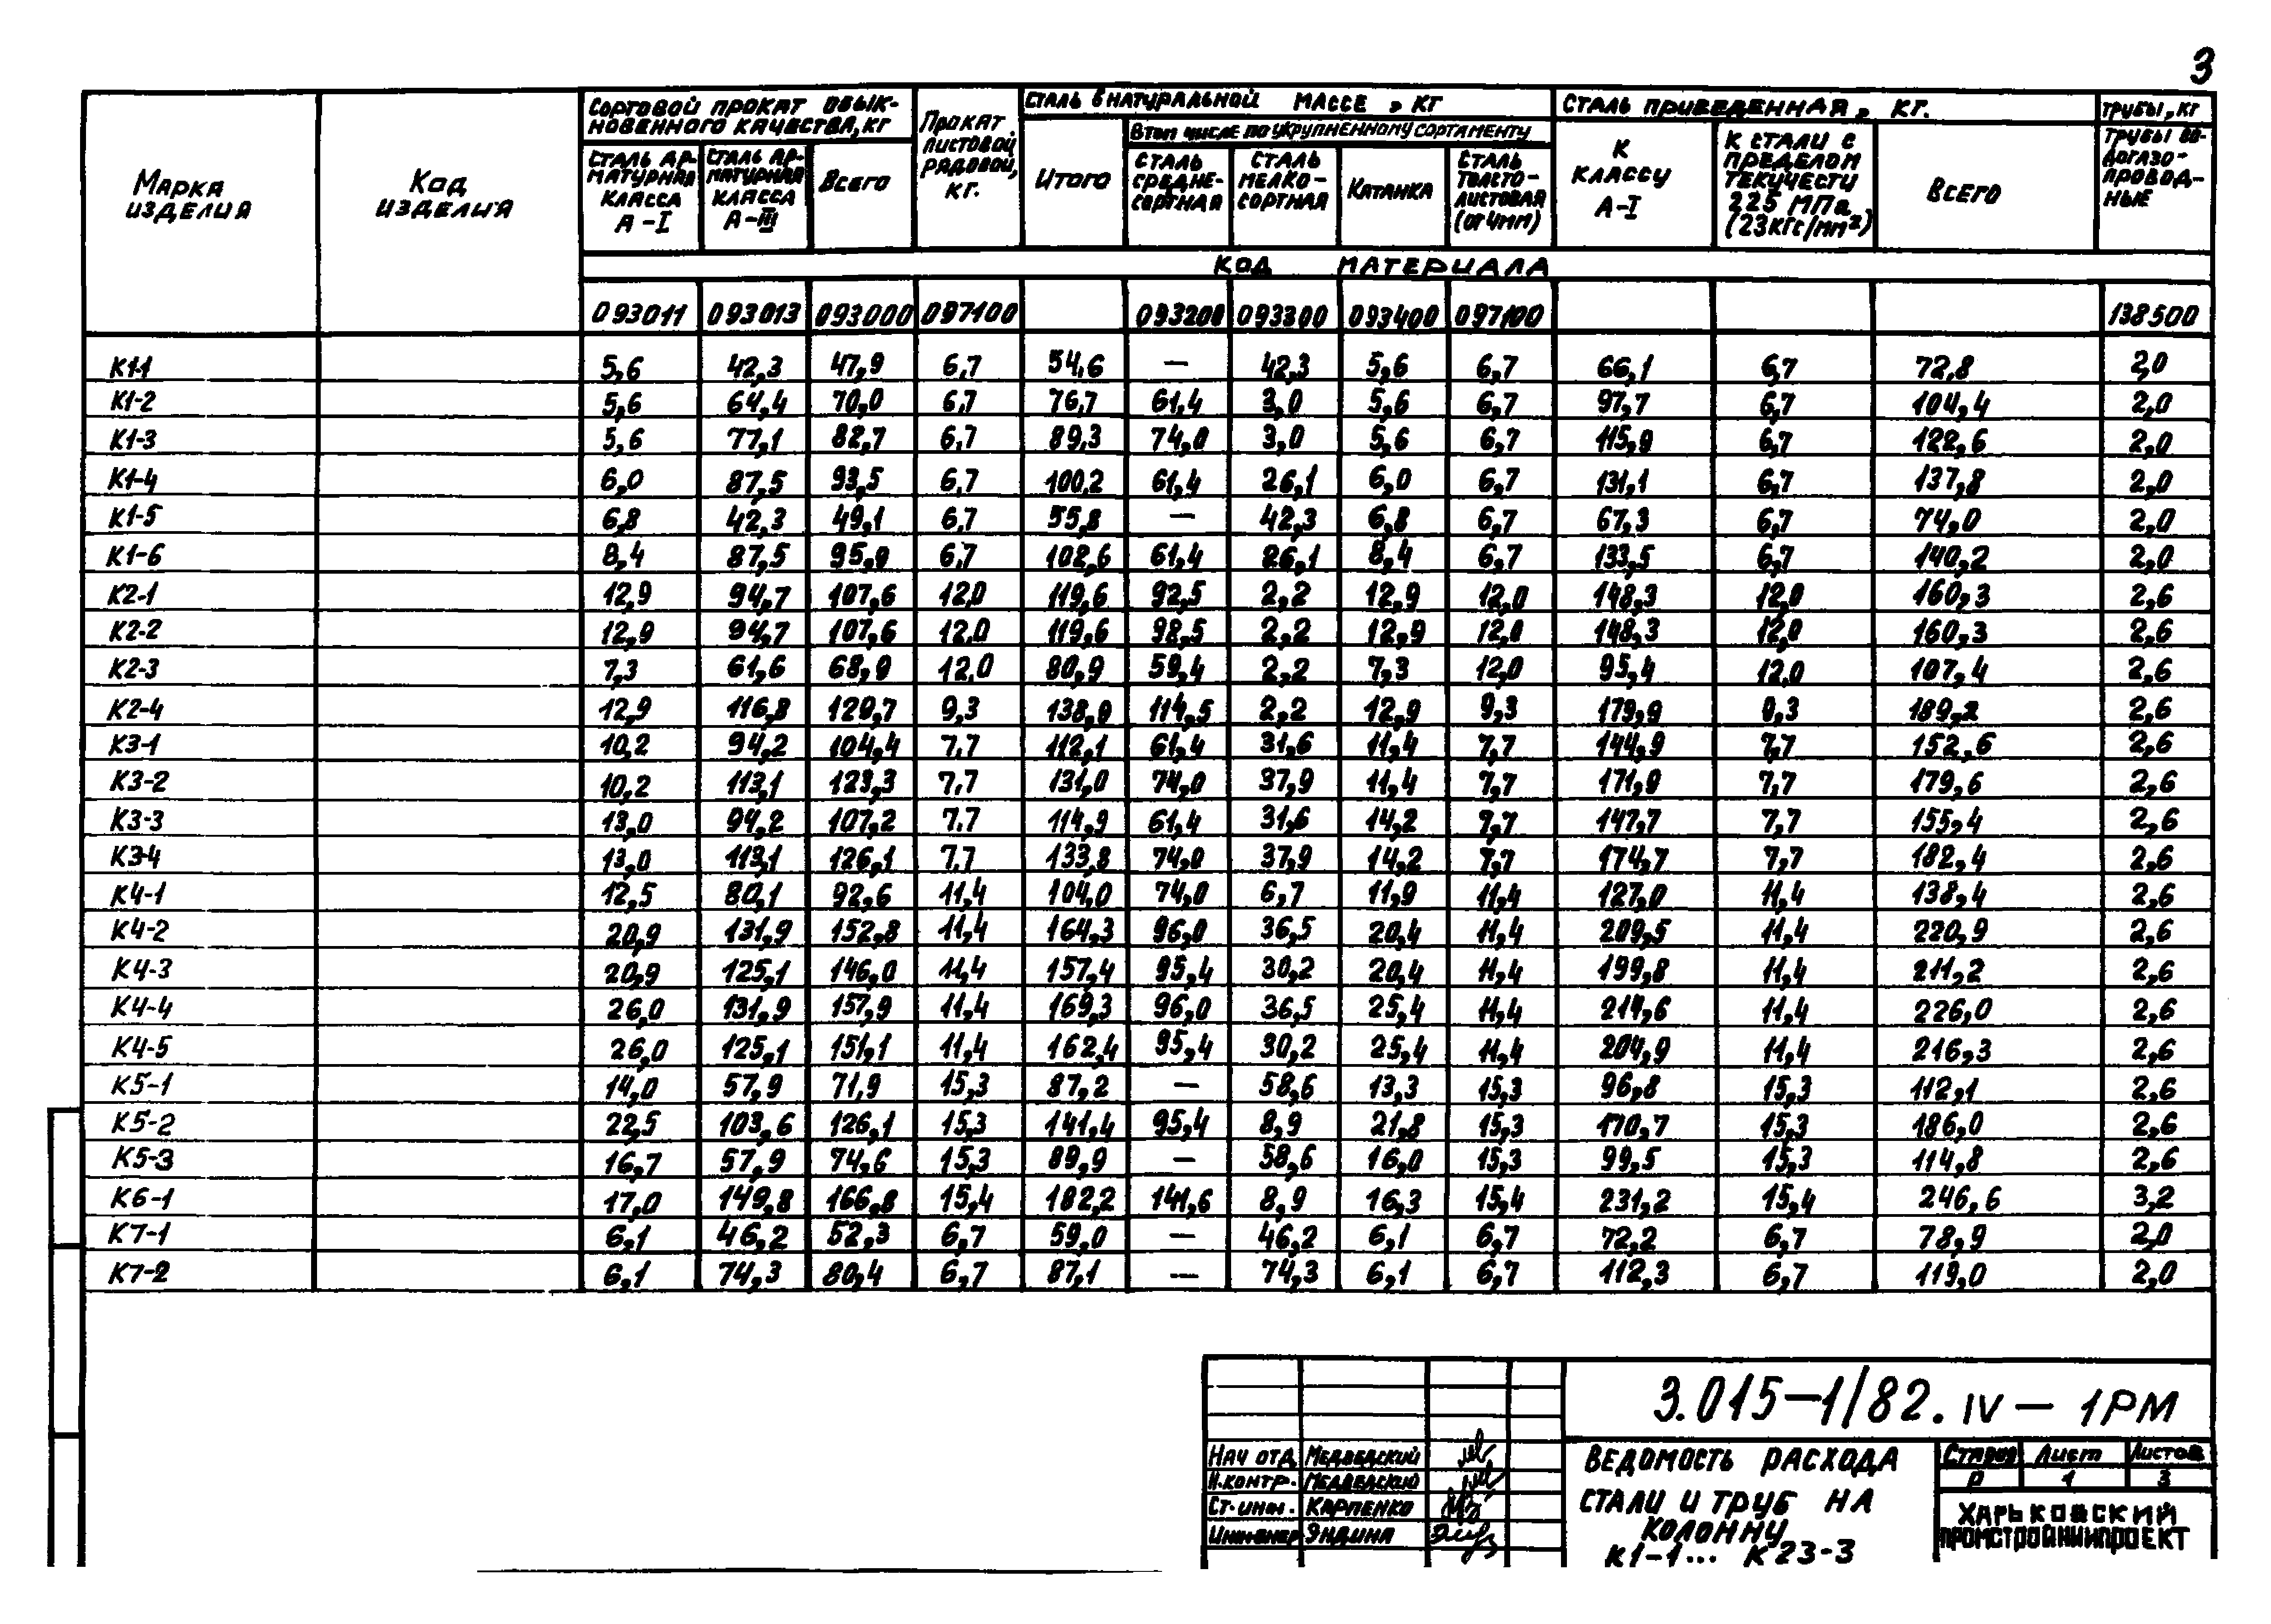 3
Марка изделия | Код изделия | Сортовой прокат обык-новенного качества, кг | Прокат листовой рядовой, кг. | Сталь в натуральной массе, кг | Сталь приведенная, кг. | Трубы, кг
Сталь ар-матурная класса А-I | Сталь ар-матурная класса А-III | Всего | Итого | В том числе по укрупненному сортаменту | К классу А-I | К стали с пределом текучести 225 МПа (23кгс/мм²) | Всего | Трубы во-догазо-провод-ные
Сталь средне-сортная | Сталь мелко-сортная | Катанка | Сталь толсто-листовая (от 4мм)
Код материала
093011 093013 093000 097100 093200 093300 093400 097100 138500
К1-1 5,6 42,3 47,9 6,7 54,6 — 42,3 5,6 6,7 66,1 6,7 72,8 2,0
К1-2 5,6 64,4 70,0 6,7 76,7 61,4 3,0 5,6 6,7 97,7 6,7 104,4 2,0
К1-3 5,6 77,1 82,7 6,7 89,3 74,0 3,0 5,6 6,7 115,9 6,7 122,6 2,0
К1-4 6,0 87,5 93,5 6,7 100,2 61,4 26,1 6,0 6,7 131,1 6,7 137,8 2,0
К1-5 6,8 42,3 49,1 6,7 55,8 — 42,3 6,8 6,7 67,3 6,7 74,0 2,0
К1-6 8,4 87,5 95,9 6,7 102,6 61,4 26,1 8,4 6,7 133,5 6,7 140,2 2,0
К2-1 12,9 94,7 107,6 12,0 119,6 92,5 2,2 12,9 12,0 148,3 12,0 160,3 2,6
К2-2 12,9 94,7 107,6 12,0 119,6 98,5 2,2 12,9 12,0 148,3 12,0 160,3 2,6
К2-3 7,3 61,6 68,9 12,0 80,9 59,4 2,2 7,3 12,0 95,4 12,0 107,4 2,6
К2-4 12,9 116,8 129,7 9,3 138,9 114,5 2,2 12,9 9,3 179,9 9,3 189,2 2,6
К3-1 10,2 94,2 104,4 7,7 112,1 61,4 31,6 11,4 7,7 144,9 7,7 152,6 2,6
К3-2 10,2 113,1 123,3 7,7 131,0 74,0 37,9 11,4 7,7 171,9 7,7 179,6 2,6
К3-3 13,0 94,2 107,2 7,7 114,9 61,4 31,6 14,2 7,7 147,7 7,7 155,4 2,6
К3-4 13,0 113,1 126,1 7,7 133,8 74,0 37,9 14,2 7,7 174,7 7,7 182,4 2,6
К4-1 12,5 80,1 92,6 11,4 104,0 74,0 6,7 11,9 11,4 127,0 11,4 138,4 2,6
К4-2 20,9 131,9 152,8 11,4 164,3 96,0 36,5 20,4 11,4 209,5 11,4 220,9 2,6
К4-3 20,9 125,1 146,0 11,4 157,4 95,4 30,2 20,4 11,4 199,8 11,4 211,2 2,6
К4-4 26,0 131,9 157,9 11,4 169,3 96,0 36,5 25,4 11,4 214,6 11,4 226,0 2,6
К4-5 26,0 125,1 151,1 11,4 162,4 95,4 30,2 25,4 11,4 204,9 11,4 216,3 2,6
К5-1 14,0 57,9 71,9 15,3 87,2 — 58,6 13,3 15,3 96,8 15,3 112,1 2,6
К5-2 22,5 103,6 126,1 15,3 141,4 95,4 8,9 21,8 15,3 170,7 15,3 186,0 2,6
К5-3 16,7 57,9 74,6 15,3 89,9 — 58,6 16,0 15,3 99,5 15,3 114,8 2,6
К6-1 17,0 149,8 166,8 15,4 182,2 141,6 8,9 16,3 15,4 231,2 15,4 246,6 3,2
К7-1 6,1 46,2 52,3 6,7 59,0 — 46,2 6,1 6,7 72,2 6,7 78,9 2,0
К7-2 6,1 74,3 80,4 6,7 87,1 — 74,3 6,1 6,7 112,3 6,7 119,0 2,0
3.015-1/82. IV - 1РМ
Нач отд Медведский
Н.контр. Медведский
Ст.инж. Карпенко
Инженер Яндина
Ведомость расхода
стали и труб на
колонну
К1-1... К23-3
Стадия Лист Листов
Р 1 3
Харьковский
Промстройниипроект